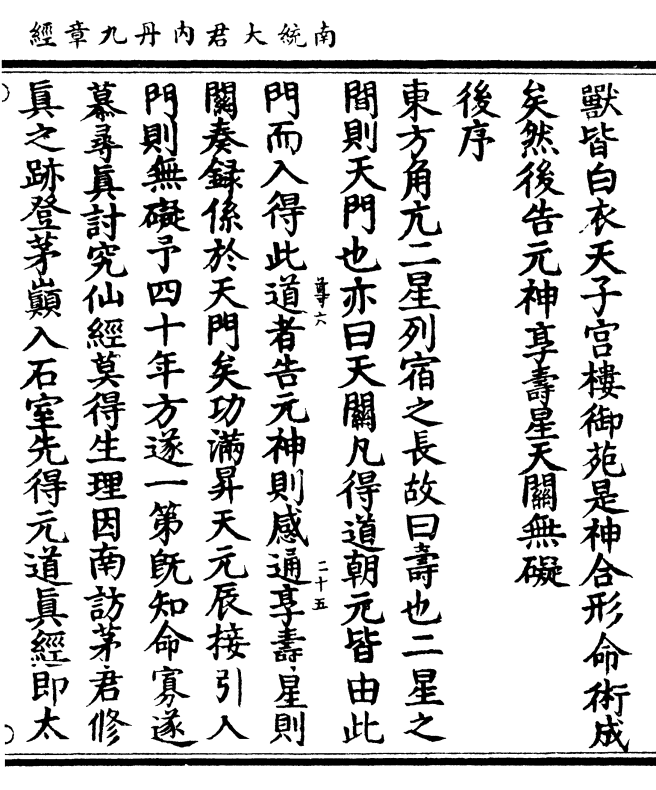 南統大君內丹九章經
獸皆白衣天子宮樓御苑是神合形命術成
矣然後告元神享壽星天關無礙
後序
東方角亢二星列宿之長故曰壽也二星之
間則天門也亦曰天關凡得道朝元皆由此
尊六
二十五
門而入得此道者告元神則感通享壽星則
關奏録係於天門矣功滿昇天元辰接引入
門則無礙予四十年方遂一第旣知命寡遂
慕尋眞討究仙經莫得生理因南訪茅君修
眞之跡登茅巓入石室先得元道眞經即太